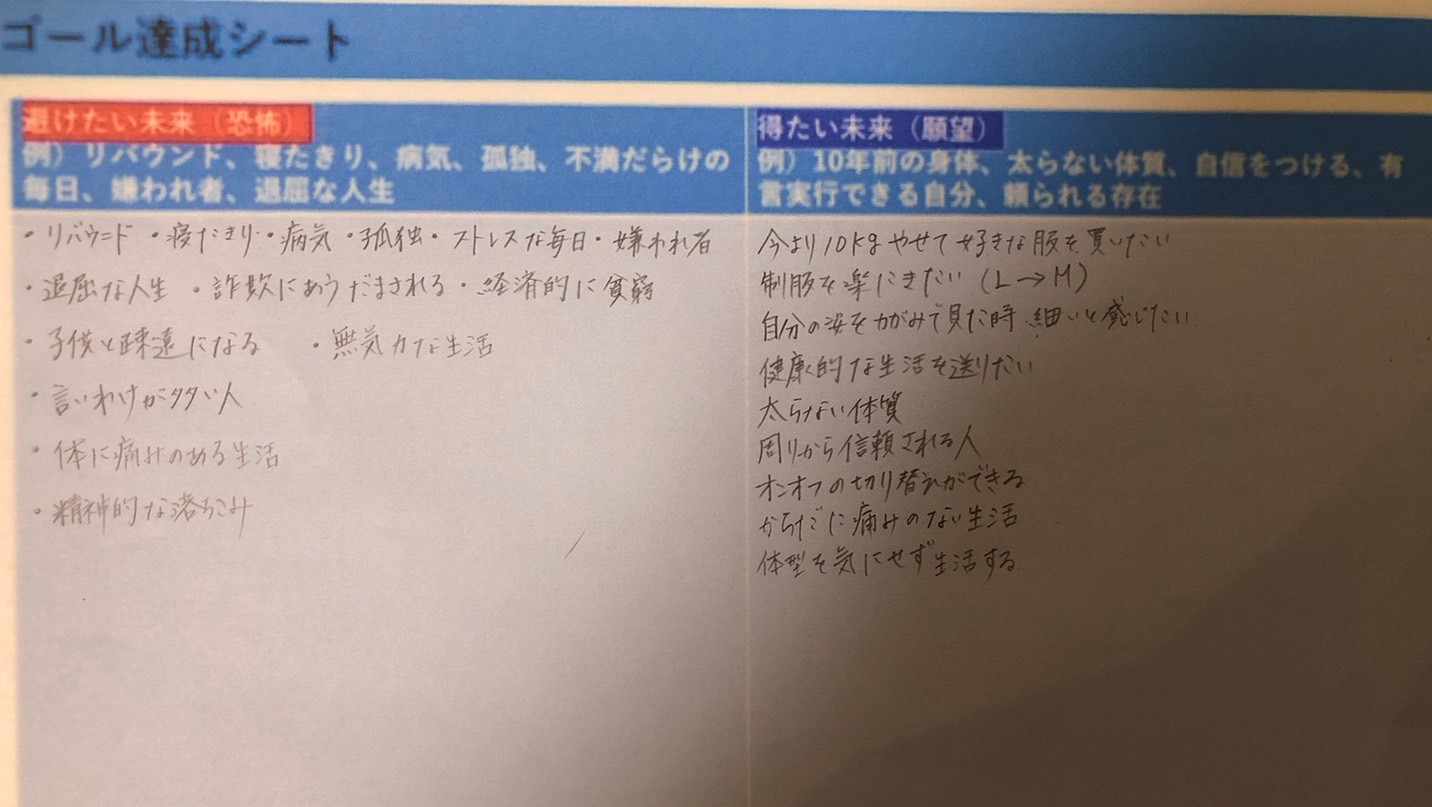 ゴール達成シート
避けたい未来（恐怖）
例）リバウンド、寝たきり、病気、孤独、不満だらけの
毎日、嫌われ者、退屈な人生
・リバウンド ・寝たきり ・病気 ・孤独 ・ストレスな毎日 ・嫌われ者
・退屈な人生 ・詐欺にあう だまされる ・経済的に貧窮
・子供と疎遠になる ・無気力な生活
・言いわけが多い人
・体に痛みのある生活
・精神的な落ちこみ
得たい未来（願望）
例）10年前の身体、太らない体質、自信をつける、有
言実行できる自分、頼られる存在
今より10kgやせて好きな服を買いたい
制服を楽にきたい（L→M）
自分の姿をかがみで見た時 細いと感じたい
健康的な生活を送りたい
太らない体質
周りから信頼される人
オンオフの切り替えができる
からだに痛みのない生活
体型を気にせず生活する